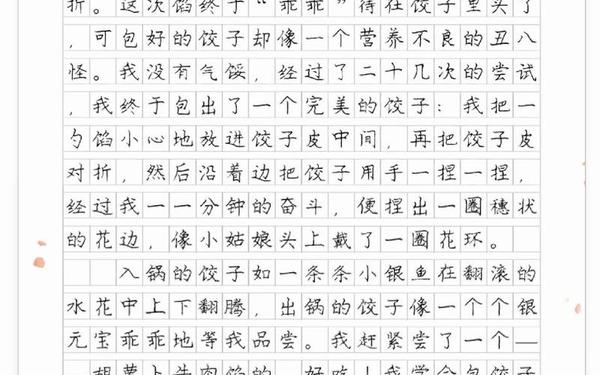 折。这次馅终于“乖乖”待在饺子里头了
，可包好的饺子却像一个营养不良的丑八
怪。我没有气馁，经过了二十几次的尝试
，我终于包出了一个完美的饺子：我把一
勺馅小心地放进饺子皮中间，再把饺子皮
对折，然后沿着边把饺子用手一捏一捏，
经过我一一分钟的奋斗，便捏出一圈穗状
的花边，像小姑娘头上戴了一圈花环。
入锅的饺子如一条条小银鱼在翻滚的
水花中上下翻腾，出锅的饺子像一个个银
元宝乖乖地等我品尝。我赶紧尝了一个—
—胡萝卜羊肉馅的，好吃！我学会包饺子